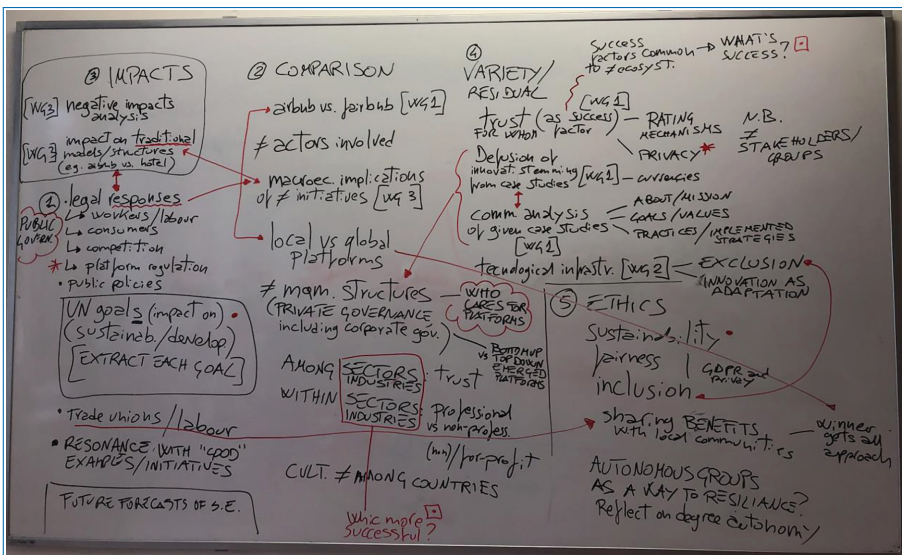 ③ IMPACTS
[WG3] negative impacts
analysis
[WG3] impact on traditional
models/structures
(eg. airbub vs. hotel)
① legal responses
PUBLIC
GOVERN.
↳ workers/labour
↳ consumers
↳ competition
* ↳ platform regulation
• public policies
UN goals (impact on)
(sustainab./develop)
[EXTRACT EACH GOAL]
• Trade unions/labour
• RESONANCE WITH "GOOD"
EXAMPLES/INITIATIVES
FUTURE FORECASTS OF S.E.
② COMPARISON
airbub vs. fairbub [WG1]
≠ actors involved
macroec. implications
of ≠ initiatives [WG3]
local vs global
platforms
≠ mqm. structures
(PRIVATE GOVERNANCE
including corporate gov.)
WHO
CARES FOR
PLATFORMS
vs
BOTTOM UP
TOP DOWN
EMERGED
PLATFORMS
AMONG
SECTORS
INDUSTRIES
: trust
WITHIN
SECTORS
INDUSTRIES
: professional
vs non-profess.
/for-profit
CULT. ≠ AMONG COUNTRIES
Whic more
successful?
④
VARIETY/
RESIDUAL
success
factors common
to ≠ ecosyst.
→ WHAT'S
SUCCESS?
[WG1]
trust (as success
factor)
FOR WHOM
RATING
MECHANISMS
PRIVACY *
N.B.
≠
STAKEHOLDERS/
GROUPS
Defusion of
innovat. stemming
from case studies [WG1] – currencies
comm analysis
of given case studies
[WG1]
ABOUT/MISSION
GOALS/VALUES
PRACTICES/IMPLEMENTED
STRATEGIES
tecnological infrastr. [WG2]
EXCLUSION
INNOVATION AS
ADAPTATION
⑤ ETHICS
sustainability
fairness
inclusion
GDPR and
privacy
sharing BENEFITS
with local communities
winner
gets all
approach
AUTONOMOUS GROUPS
AS A WAY TO RESILIANCE?
Reflect on degree autonomy